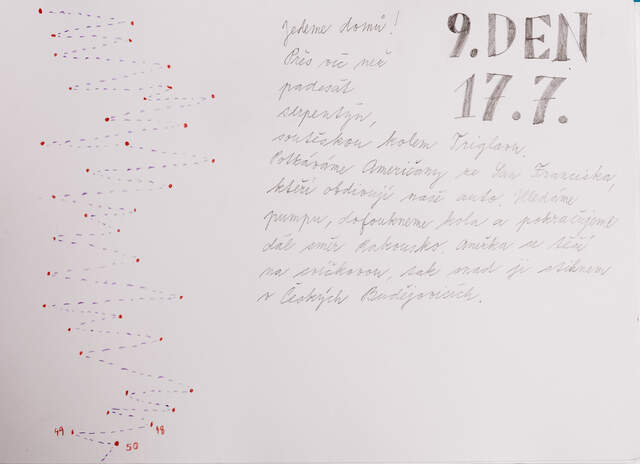 9. DEN
17.7.
Jedeme domů!
Přes víc než
padesát
serpentýn,
soutěskou kolem Triglavu.
Potkáváme Američany ze San Franciska,
kteří obdivují naše auto. Hledáme
pumpu, dofoukneme kola a pokračujeme
dál směr Rakousko. Anežka se těší
na svíčkovou, tak snad ji stihnem
v Českých Budějovicích.
49
48
50